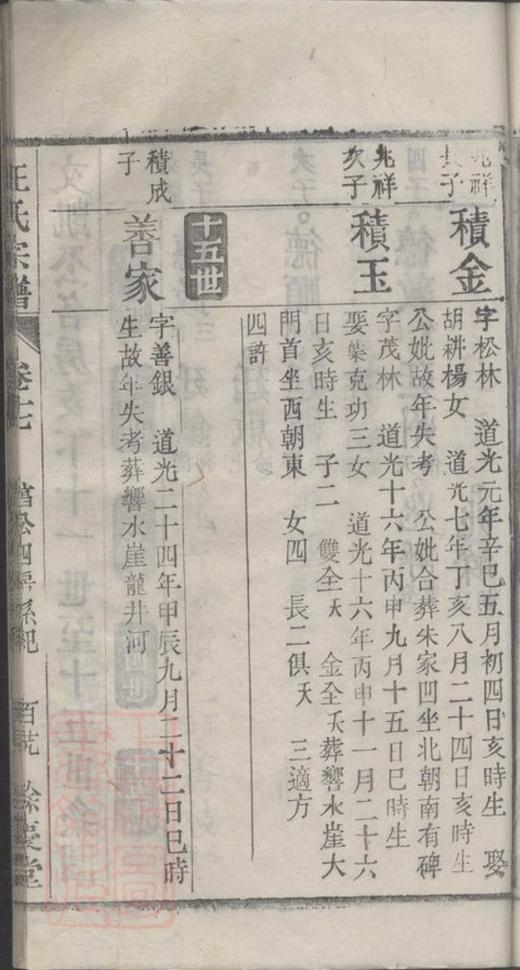 兆祥
長子
積金
字松林　道光元年辛巳五月初四日亥時生　娶
胡耕楊女　道光七年丁亥八月二十四日亥時生
公妣故年失考　公妣合葬朱家凹坐北朝南有碑
兆祥
次子
積玉
字茂林　道光十六年丙申九月十五日巳時生
娶葉克功三女　道光十六年丙申十一月二十六
日亥時生　子二　雙全夭　金全夭葬響水崖大
門首坐西朝東　女四　長二俱夭　三適方
四許
十五世
積成
子
善家
字善銀　道光二十四年甲辰九月二十二日巳時
生故年失考葬響水崖龍井河
汪氏宗譜
卷七
當公四房系紀
餘慶堂